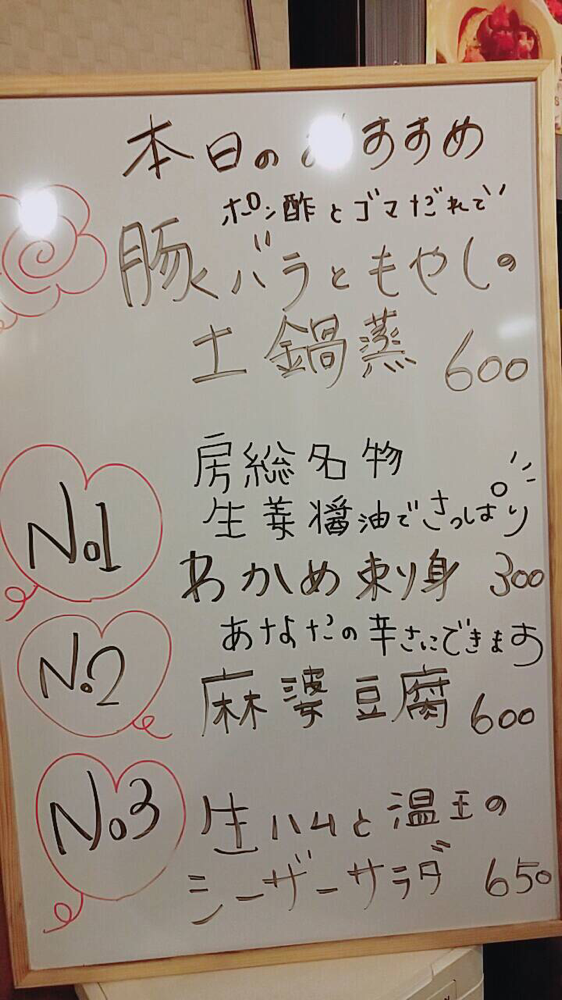 本日のおすすめ
ポン酢とゴマだれで
豚バラともやしの
土鍋蒸 600
房総名物
生姜醤油でさっぱり
No.1 わかめ刺り身 300
あなたの辛さにできます
No.2 麻婆豆腐 600
No.3 生ハムと温玉の
シーザーサラダ 650